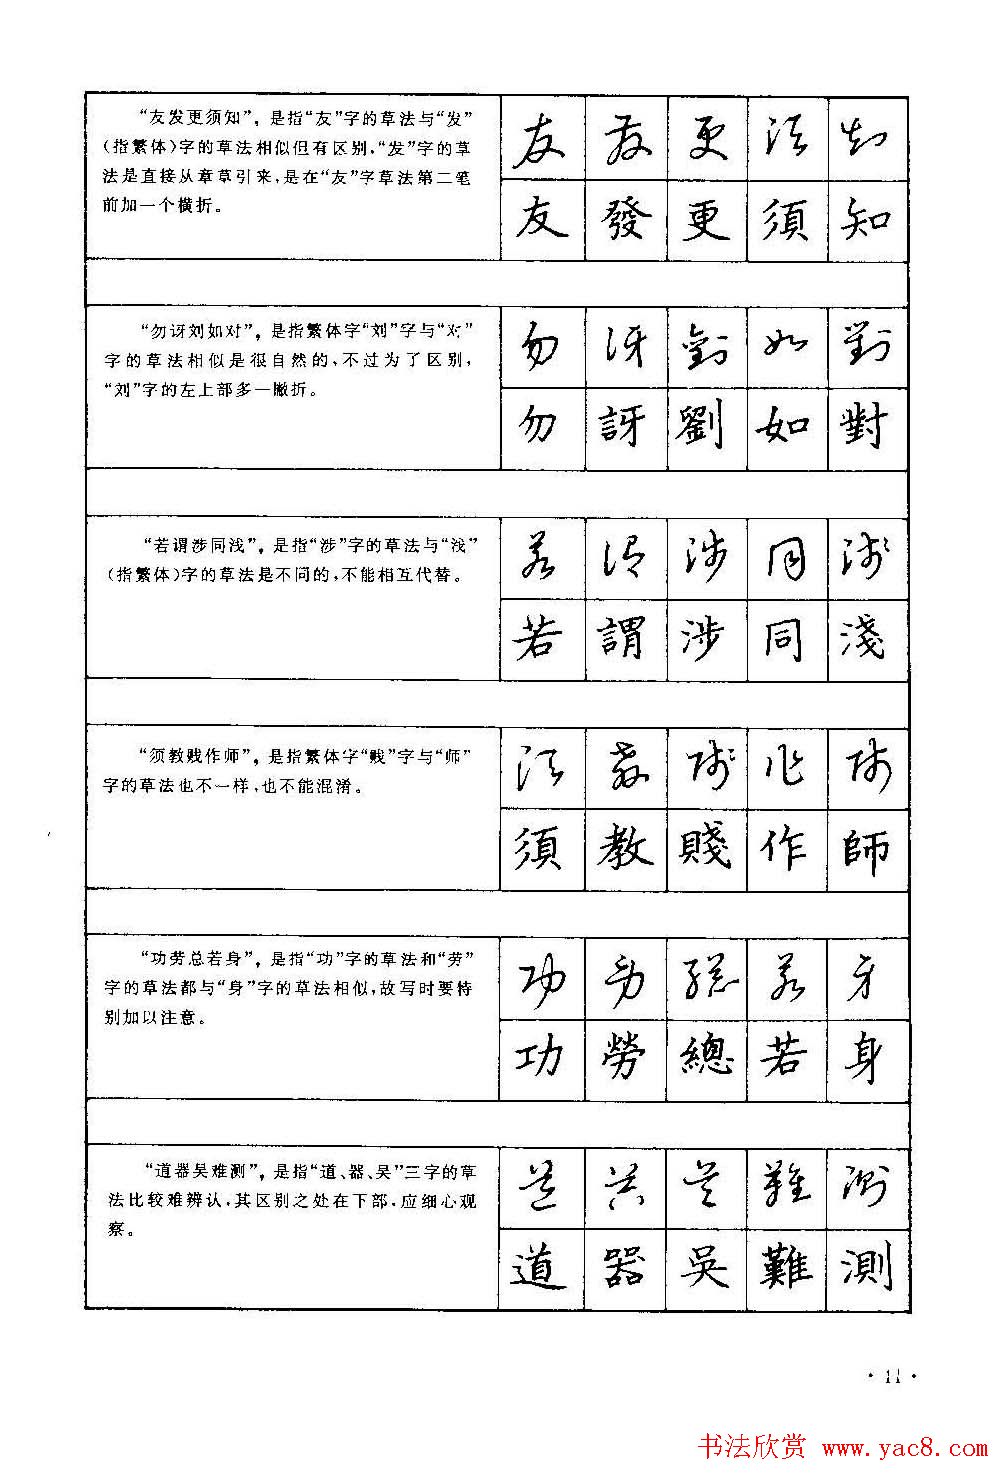 “友发更须知”，是指“友”字的草法与“发”
（指繁体）字的草法相似但有区别，“发”字的草
法是直接从章草引来，是在“友”字草法第二笔
前加一个横折。
友 发 更 须 知
友 發 更 須 知
“勿讶刘如对”，是指繁体字“刘”字与“对”
字的草法相似是很自然的，不过为了区别，
“刘”字的左上部多一撇折。
勿 讶 劉 如 對
勿 訝 劉 如 對
“若谓涉同浅”，是指“涉”字的草法与“浅”
（指繁体）字的草法是不同的，不能相互代替。
若 谓 涉 同 浅
若 謂 涉 同 淺
“须教贱作师”，是指繁体字“贱”字与“师”
字的草法也不一样，也不能混淆。
须 教 贱 作 师
須 教 賤 作 師
“功劳总若身”，是指“功”字的草法和“劳”
字的草法都与“身”字的草法相似，故写时要特
别加以注意。
功 劳 總 若 身
功 勞 總 若 身
“道器吴难测”，是指“道、器、吴”三字的草
法比较难辨认，其区别之处在下部，应细心观
察。
道 器 吴 難 测
道 器 吳 難 測
·11·
书法欣赏 www.yac8.com